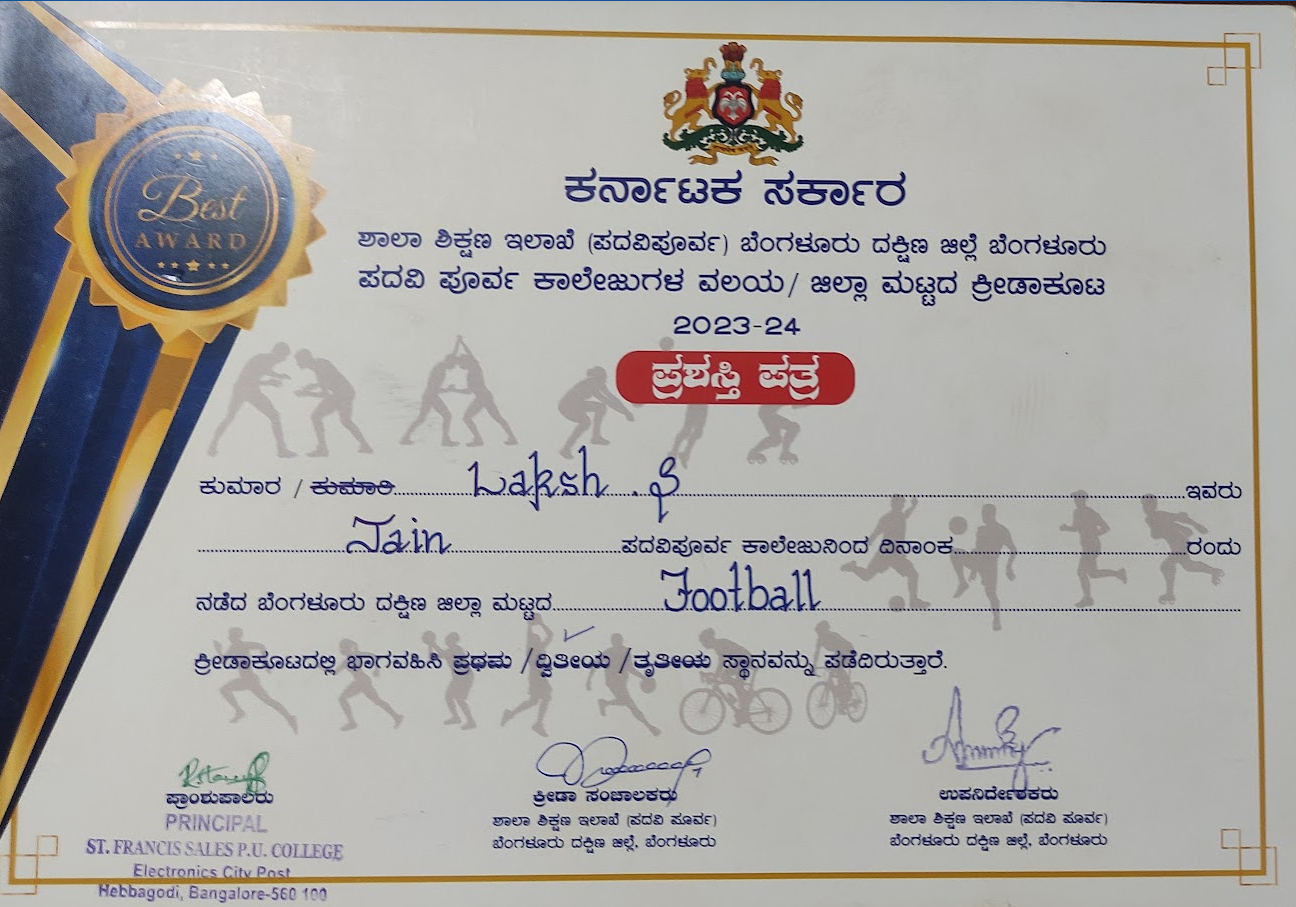 Best
AWARD
ಕರ್ನಾಟಕ ಸರ್ಕಾರ
ಶಾಲಾ ಶಿಕ್ಷಣ ಇಲಾಖೆ (ಪದವಿಪೂರ್ವ) ಬೆಂಗಳೂರು ದಕ್ಷಿಣ ಜಿಲ್ಲೆ ಬೆಂಗಳೂರು
ಪದವಿ ಪೂರ್ವ ಕಾಲೇಜುಗಳ ವಲಯ/ ಜಿಲ್ಲಾ ಮಟ್ಟದ ಕ್ರೀಡಾಕೂಟ
2023-24
ಪ್ರಶಸ್ತಿ ಪತ್ರ
ಕುಮಾರ / ಕುಮಾರಿ Laksh . S ಇವರು
Jain ಪದವಿಪೂರ್ವ ಕಾಲೇಜುನಿಂದ ದಿನಾಂಕ ರಂದು
ನಡೆದ ಬೆಂಗಳೂರು ದಕ್ಷಿಣ ಜಿಲ್ಲಾ ಮಟ್ಟದ Football
ಕ್ರೀಡಾಕೂಟದಲ್ಲಿ ಭಾಗವಹಿಸಿ ಪ್ರಥಮ /ದ್ವಿತೀಯ /ತೃತೀಯ ಸ್ಥಾನವನ್ನು ಪಡೆದಿರುತ್ತಾರೆ.
ಪ್ರಾಂಶುಪಾಲರು
PRINCIPAL
ST. FRANCIS SALES P.U. COLLEGE
Electronics City Post
Hebbagodi, Bangalore-560 100
ಕ್ರೀಡಾ ಸಂಚಾಲಕರು
ಶಾಲಾ ಶಿಕ್ಷಣ ಇಲಾಖೆ (ಪದವಿ ಪೂರ್ವ)
ಬೆಂಗಳೂರು ದಕ್ಷಿಣ ಜಿಲ್ಲೆ, ಬೆಂಗಳೂರು
ಉಪನಿರ್ದೇಶಕರು
ಶಾಲಾ ಶಿಕ್ಷಣ ಇಲಾಖೆ (ಪದವಿ ಪೂರ್ವ)
ಬೆಂಗಳೂರು ದಕ್ಷಿಣ ಜಿಲ್ಲೆ, ಬೆಂಗಳೂರು